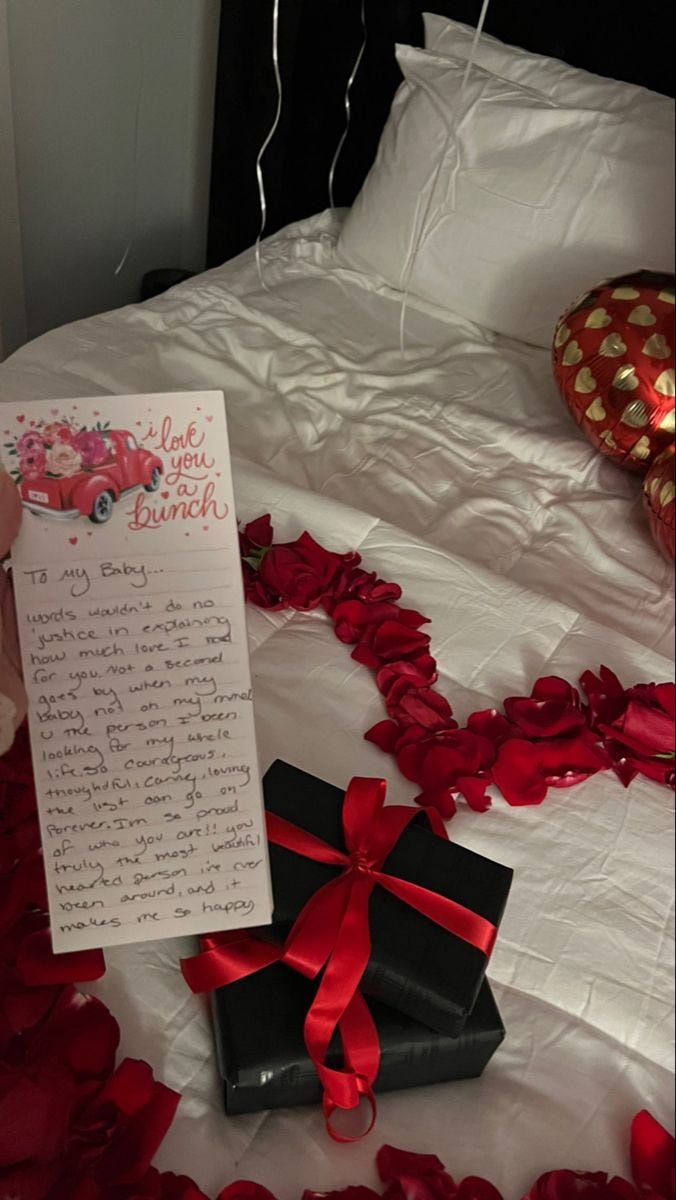 i love
you
a
bunch
To My Baby...
words wouldn't do no
justice in explaining
how much love I
for you. Not a second
goes by when my
baby not on my mind
u the person I been
looking for my whole
life. so courageous,
thoughtful, caring, loving
the list can go on
Forever. I'm so proud
of who you are!! you
truly the most beautiful
hearted person i've ever
been around, and it
makes me so happy